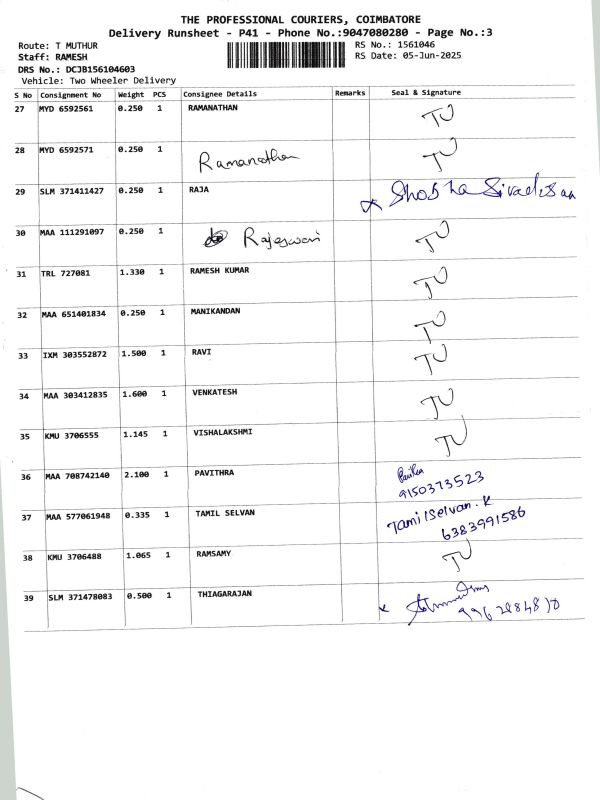 THE PROFESSIONAL COURIERS, COIMBATORE
Delivery Runsheet - P41 - Phone No.:9047080280 - Page No.:3
Route: T MUTHUR
RS No.: 1561046
Staff: RAMESH
RS Date: 05-Jun-2025
DRS No.: DCJB156104603
Vehicle: Two Wheeler Delivery
S No Consignment No Weight PCS Consignee Details Remarks Seal & Signature
27 MYD 6592561 0.250 1 RAMANATHAN TJ
28 MYD 6592571 0.250 1 Ramanathan TJ
29 SLM 371411427 0.250 1 RAJA Shobha
30 MAA 111291097 0.250 1 Rajeswari TJ
31 TRL 727081 1.330 1 RAMESH KUMAR TJ
32 MAA 651401834 0.250 1 MANIKANDAN TJ
33 IXM 303552872 1.500 1 RAVI TJ
34 MAA 303412835 1.600 1 VENKATESH TJ
35 KMU 3706555 1.145 1 VISHALAKSHMI TJ
36 MAA 708742140 2.100 1 PAVITHRA
9150373523
37 MAA 577061948 0.335 1 TAMIL SELVAN TamilSelvan. K
6383991586
38 KMU 3706488 1.065 1 RAMSAMY TJ
39 SLM 371478083 0.500 1 THIAGARAJAN